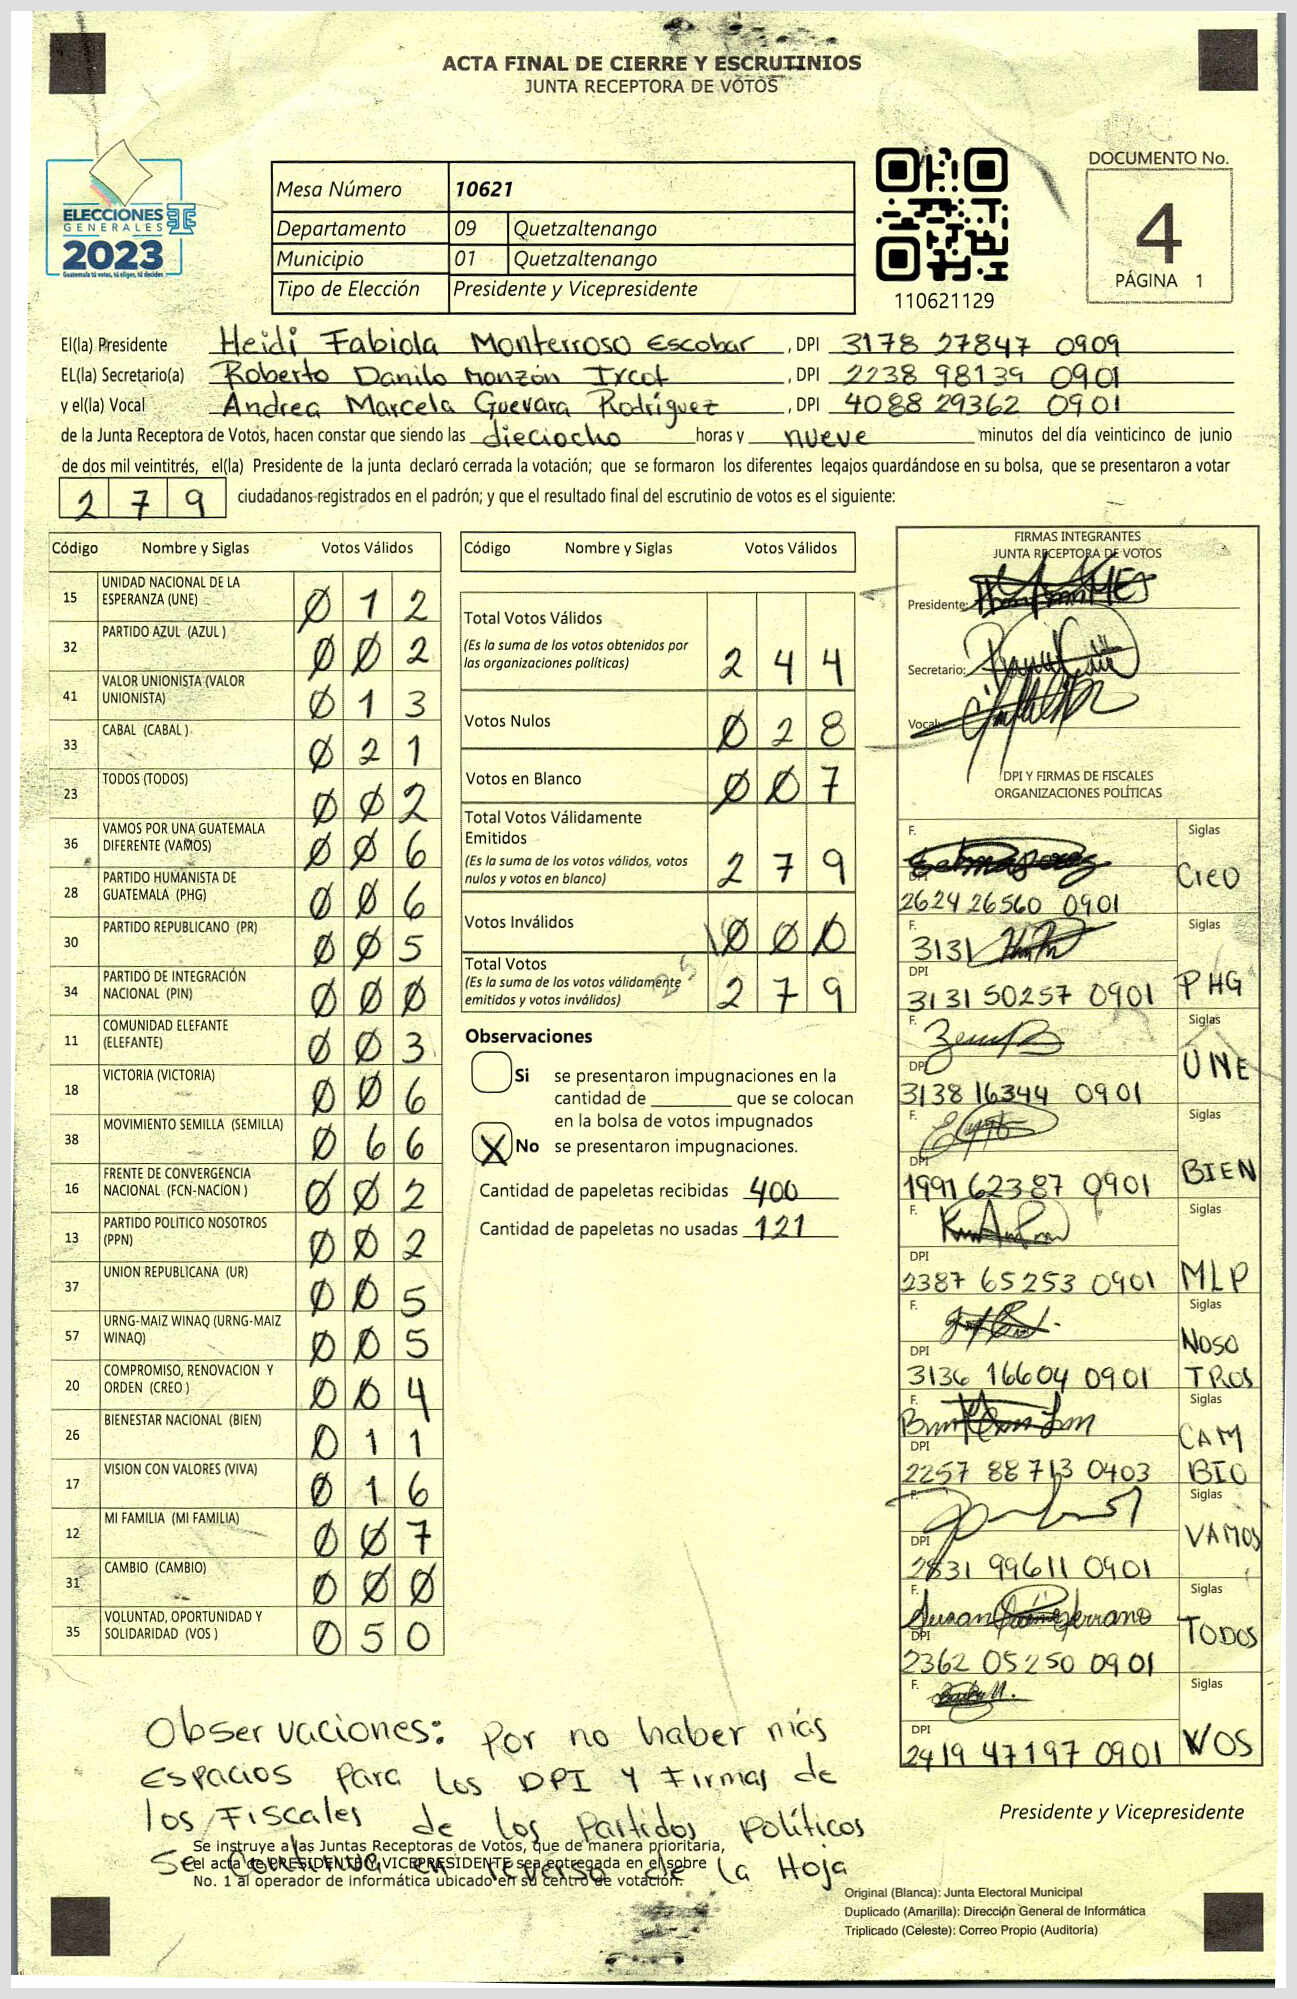 ACTA FINAL DE CIERRE Y ESCRUTINIOS
JUNTA RECEPTORA DE VOTOS
ELECCIONES
GENERALES
2023
Guatemala tú votas, tú eliges, tú decides
Mesa Número 10621
Departamento 09 Quetzaltenango
Municipio 01 Quetzaltenango
Tipo de Elección Presidente y Vicepresidente
110621129
DOCUMENTO No.
4
PÁGINA 1
El(la) Presidente Heidi Fabiola Monterroso Escobar, DPI 3178 27847 0909
EL(la) Secretario(a) Roberto Danilo Monzón Ixcot, DPI 2238 98139 0901
y el(la) Vocal Andrea Marcela Guevara Rodríguez, DPI 4088 29362 0901
de la Junta Receptora de Votos, hacen constar que siendo las dieciocho horas y nueve minutos del día veinticinco de junio
de dos mil veintitrés, el(la) Presidente de la junta declaró cerrada la votación; que se formaron los diferentes legajos guardándose en su bolsa, que se presentaron a votar
279 ciudadanos registrados en el padrón; y que el resultado final del escrutinio de votos es el siguiente:
Código Nombre y Siglas Votos Válidos
15 UNIDAD NACIONAL DE LA
ESPERANZA (UNE) 012
32 PARTIDO AZUL (AZUL ) 002
41 VALOR UNIONISTA (VALOR
UNIONISTA) 013
33 CABAL (CABAL ) 021
23 TODOS (TODOS) 002
36 VAMOS POR UNA GUATEMALA
DIFERENTE (VAMOS) 006
28 PARTIDO HUMANISTA DE
GUATEMALA (PHG) 006
30 PARTIDO REPUBLICANO (PR) 005
34 PARTIDO DE INTEGRACIÓN
NACIONAL (PIN) 000
11 COMUNIDAD ELEFANTE
(ELEFANTE) 003
18 VICTORIA (VICTORIA) 006
38 MOVIMIENTO SEMILLA (SEMILLA) 066
16 FRENTE DE CONVERGENCIA
NACIONAL (FCN-NACION ) 002
13 PARTIDO POLÍTICO NOSOTROS
(PPN) 002
37 UNION REPUBLICANA (UR) 005
57 URNG-MAIZ WINAQ (URNG-MAIZ
WINAQ) 005
20 COMPROMISO, RENOVACION Y
ORDEN (CREO ) 004
26 BIENESTAR NACIONAL (BIEN) 011
17 VISION CON VALORES (VIVA) 016
12 MI FAMILIA (MI FAMILIA) 007
31 CAMBIO (CAMBIO) 000
35 VOLUNTAD, OPORTUNIDAD Y
SOLIDARIDAD (VOS ) 050
Código Nombre y Siglas Votos Válidos
Total Votos Válidos
(Es la suma de los votos obtenidos por
las organizaciones políticas) 244
Votos Nulos 028
Votos en Blanco 007
Total Votos Válidamente
Emitidos
(Es la suma de los votos válidos, votos
nulos y votos en blanco) 279
Votos Inválidos 000
Total Votos
(Es la suma de los votos válidamente
emitidos y votos inválidos) 279
Observaciones
Si se presentaron impugnaciones en la
cantidad de ________ que se colocan
en la bolsa de votos impugnados
X No se presentaron impugnaciones.
Cantidad de papeletas recibidas 400
Cantidad de papeletas no usadas 121
FIRMAS INTEGRANTES
JUNTA RECEPTORA DE VOTOS
Presidente:
Secretario:
Vocal:
DPI Y FIRMAS DE FISCALES
ORGANIZACIONES POLÍTICAS
F. Siglas
DPI Creo
2624 26560 0901
F. Siglas
3131
DPI
3131 50257 0901 PHG
F. Siglas
DPI UNE
3138 16344 0901
F. Siglas
DPI
1991 62387 0901 BIEN
F. Siglas
DPI
2387 65253 0901 MLP
F. Siglas
DPI NOSO
3136 16604 0901 TROS
F. Siglas
DPI CAM
2257 88713 0403 BIO
F. Siglas
DPI VAMOS
2831 99611 0901
F. Siglas
Susan Serrano
DPI TODOS
2362 05250 0901
F. Siglas
DPI
2419 47197 0901 VOS
Observaciones: Por no haber más
Espacios para los DPI y Firmas de
los Fiscales de los Partidos políticos
Se en reverso de la Hoja
Se instruye a las Juntas Receptoras de Votos, que de manera prioritaria,
el acta de PRESIDENTE Y VICEPRESIDENTE sea entregada en el sobre
No. 1 al operador de informática ubicado en su centro de votación.
Presidente y Vicepresidente
Original (Blanca): Junta Electoral Municipal
Duplicado (Amarilla): Dirección General de Informática
Triplicado (Celeste): Correo Propio (Auditoría)